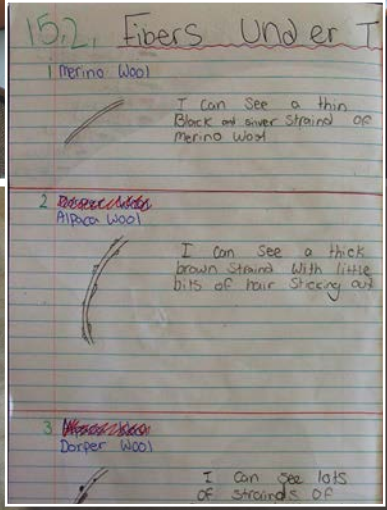 15.2. Fibers Under T
1 Merino Wool
I Can See a thin
Black and silver Straind OF
Merino Wool
2
Alpaca Wool
I Can See a thick
brown Straind With little
bits of hair Sticking out
3
Dorper Wool
I Can See lots
OF Strainds OF